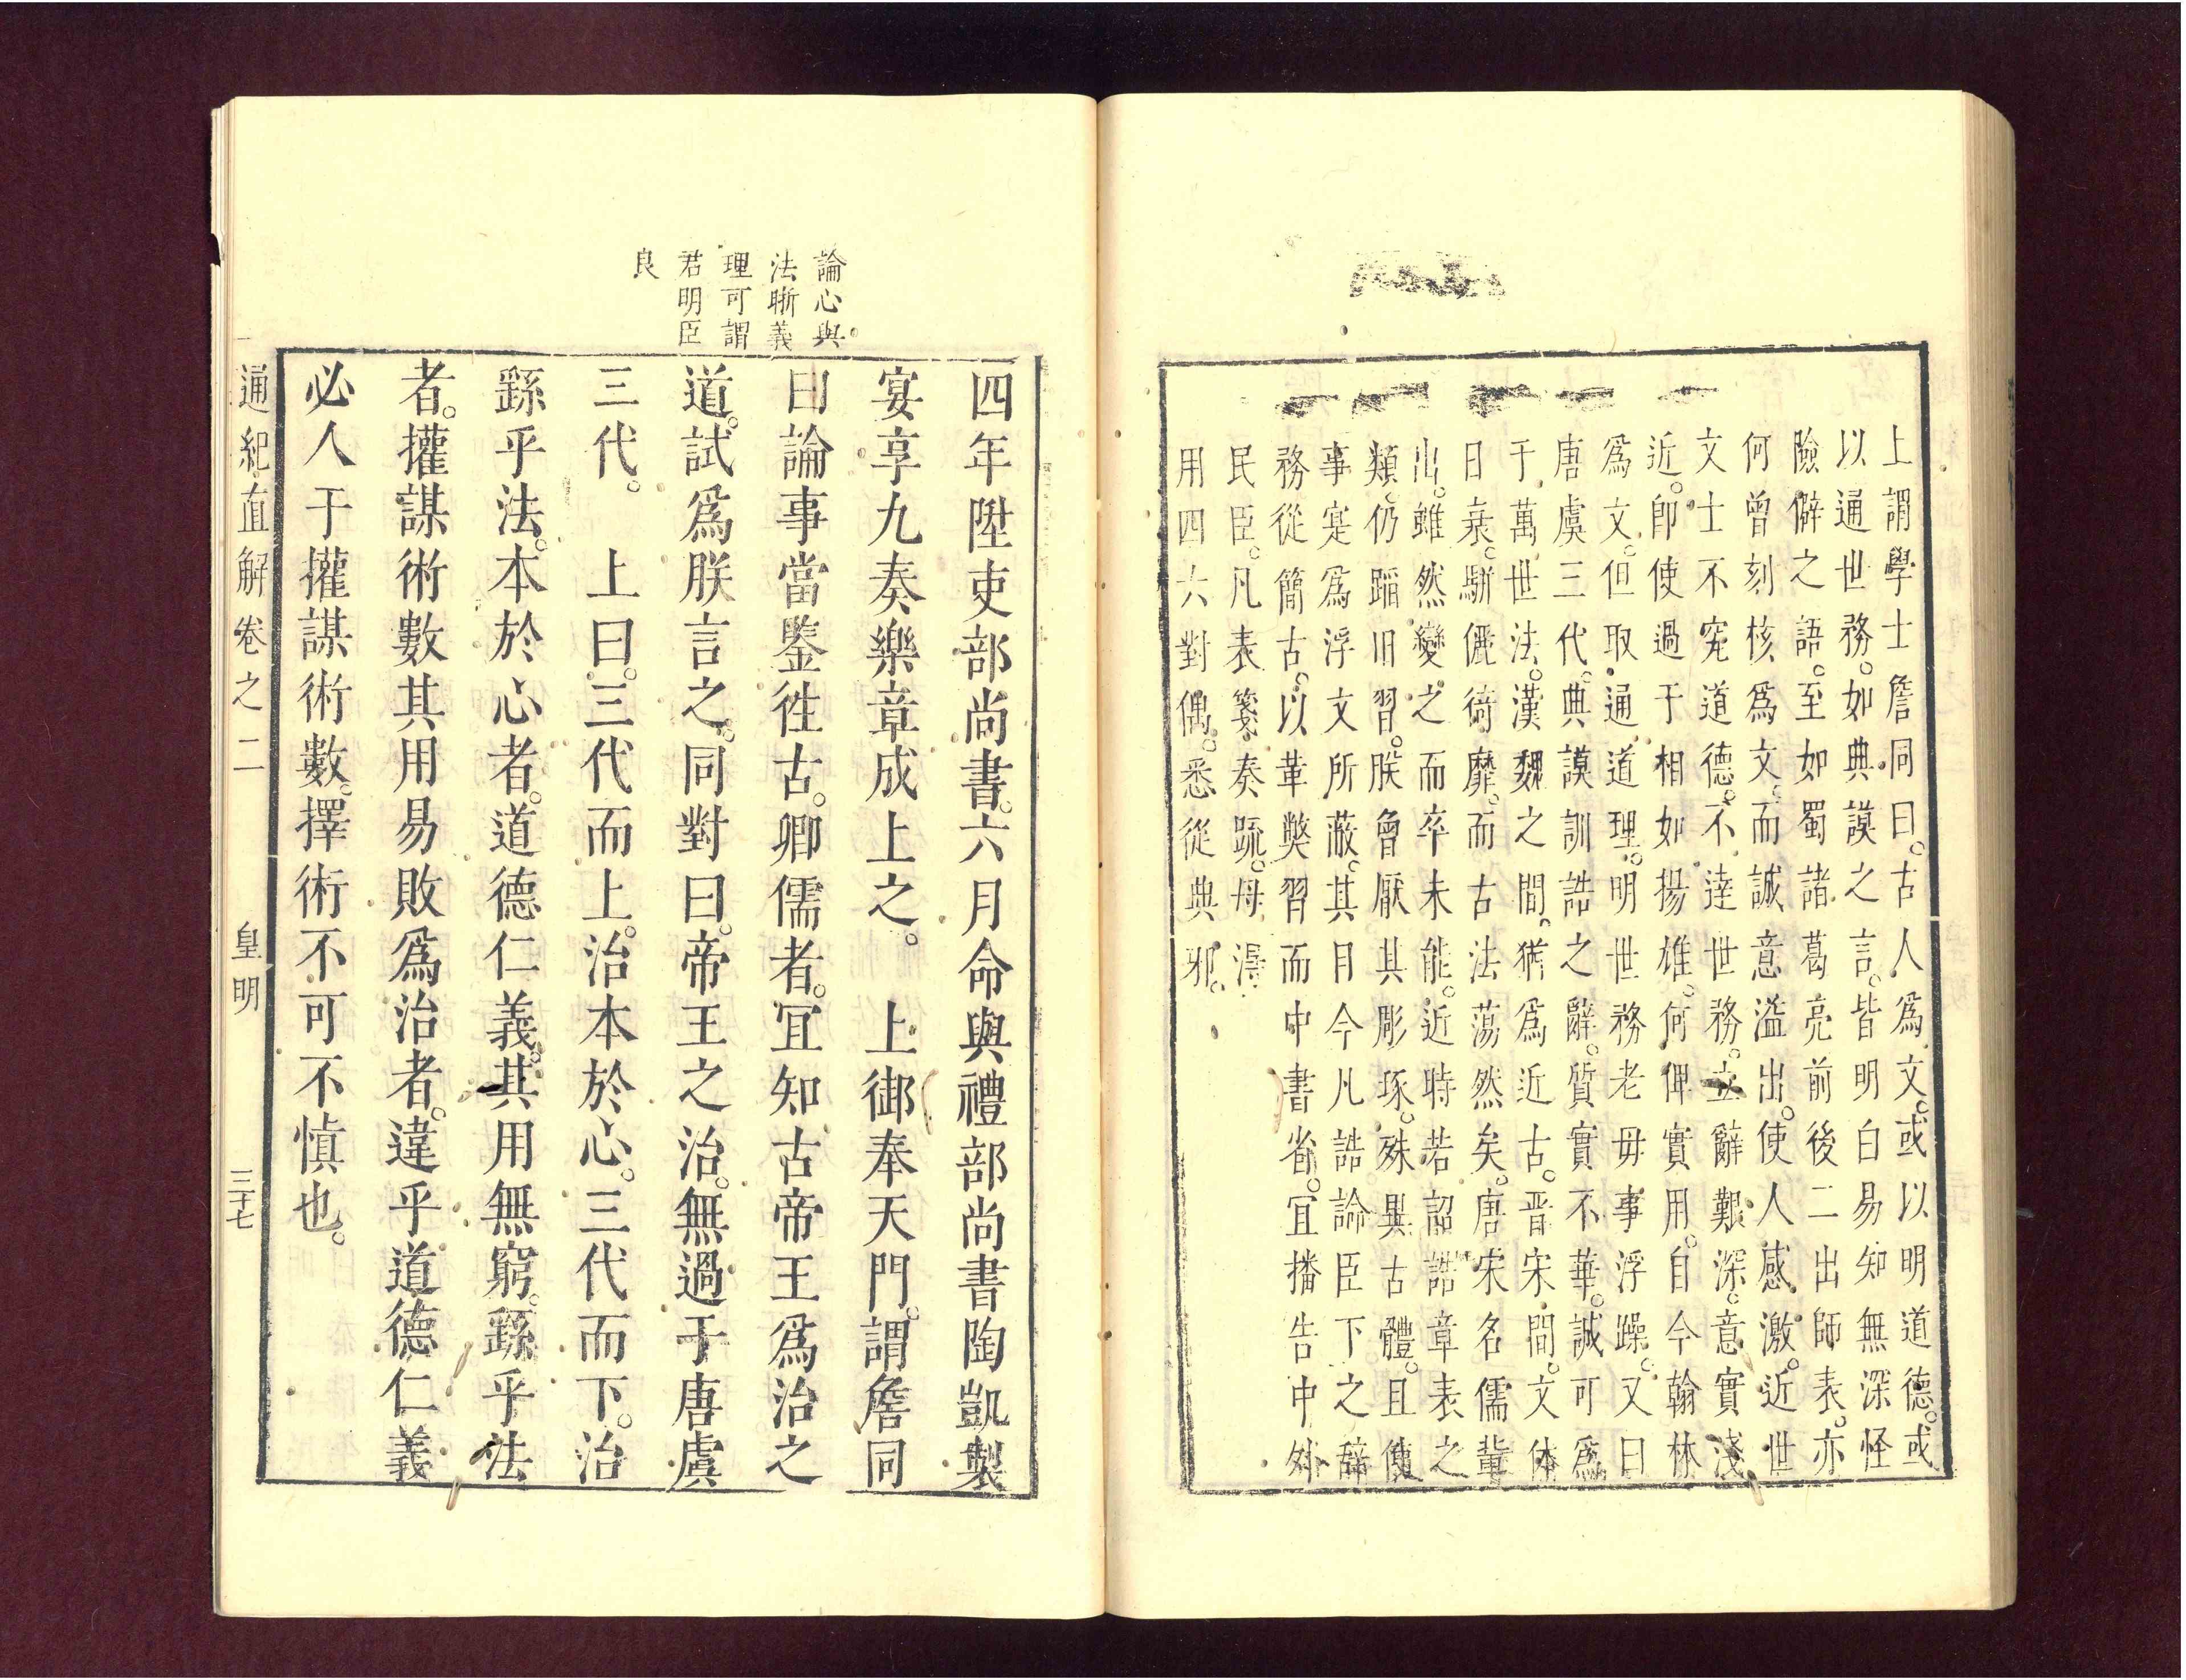 上謂學士詹同曰。古人爲文。或以明道德。或
以通世務。如典謨之言。皆明白易知無深怪
險僻之語。至如蜀諸葛亮前後二出師表。亦
何曾刻核爲文。而誠意溢出。使人感激。近世
文士不究道德。不達世務。立辭艱深。意實淺
近。即使過于相如揚雄。何俾實用。自今翰林
爲文。但取通道理。明世務老毋事浮躁。又曰
唐虞三代。典謨訓誥之辭。質實不華。誠可爲
于萬世法。漢魏之間。猶爲近古。晋宋間。文体
日衰。駢儷綺靡。而古法蕩然矣。唐宋名儒輩
出。雖然變之而卒未能。近時若詔誥章表之
類。仍蹈旧習。朕曾厭其彫琢。殊異古體。且使
事寔爲浮文所蔽。其目今凡誥諭臣下之辞
務從簡古。以革獘習而中書省。宜播告中外
民臣。凡表箋奏疏。毋淂
用四六對偶。悉從典邪。
論心與
法晰義
理可謂
君明臣
良
四年陞吏部尚書。六月命與禮部尚書陶凱製
宴享九奏樂章成上之。　上御奉天門。謂詹同
曰論事當鑒徃古。卿儒者。宜知古帝王爲治之
道。試爲朕言之。同對曰。帝王之治。無過于唐虞
三代。　上曰。三代而上。治本於心。三代而下。治
繇乎法。本於心者。道德仁義。其用無窮。繇乎法
者。權謀術數其用易敗爲治者。違乎道德仁義
必人于權謀術數。擇術不可不慎也。
通紀直解 卷之二　皇明　三十七